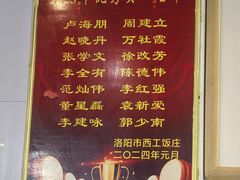 卢海朋 周建立
赵晓丹 万社霞
张学文 徐改芳
李全有 陈德伟
范灿伟 李红强
董星磊 袁新爱
李建咏 郭少南
洛阳市西工饭庄
二〇二四年元月